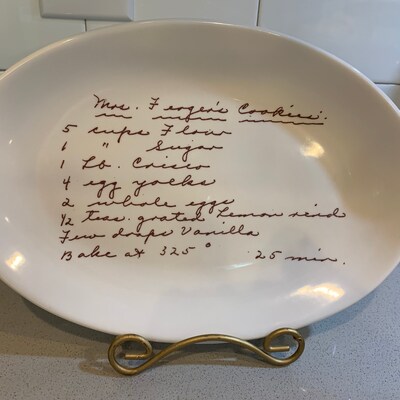 Mrs. Ferger's Cookies.
5 cups Flour
1 " Sugar
1 Lb. Crisco
4 egg yolks
2 whole eggs
1/2 teas. grated Lemon reind
Few drops Vanilla
Bake at 325° 25 min.